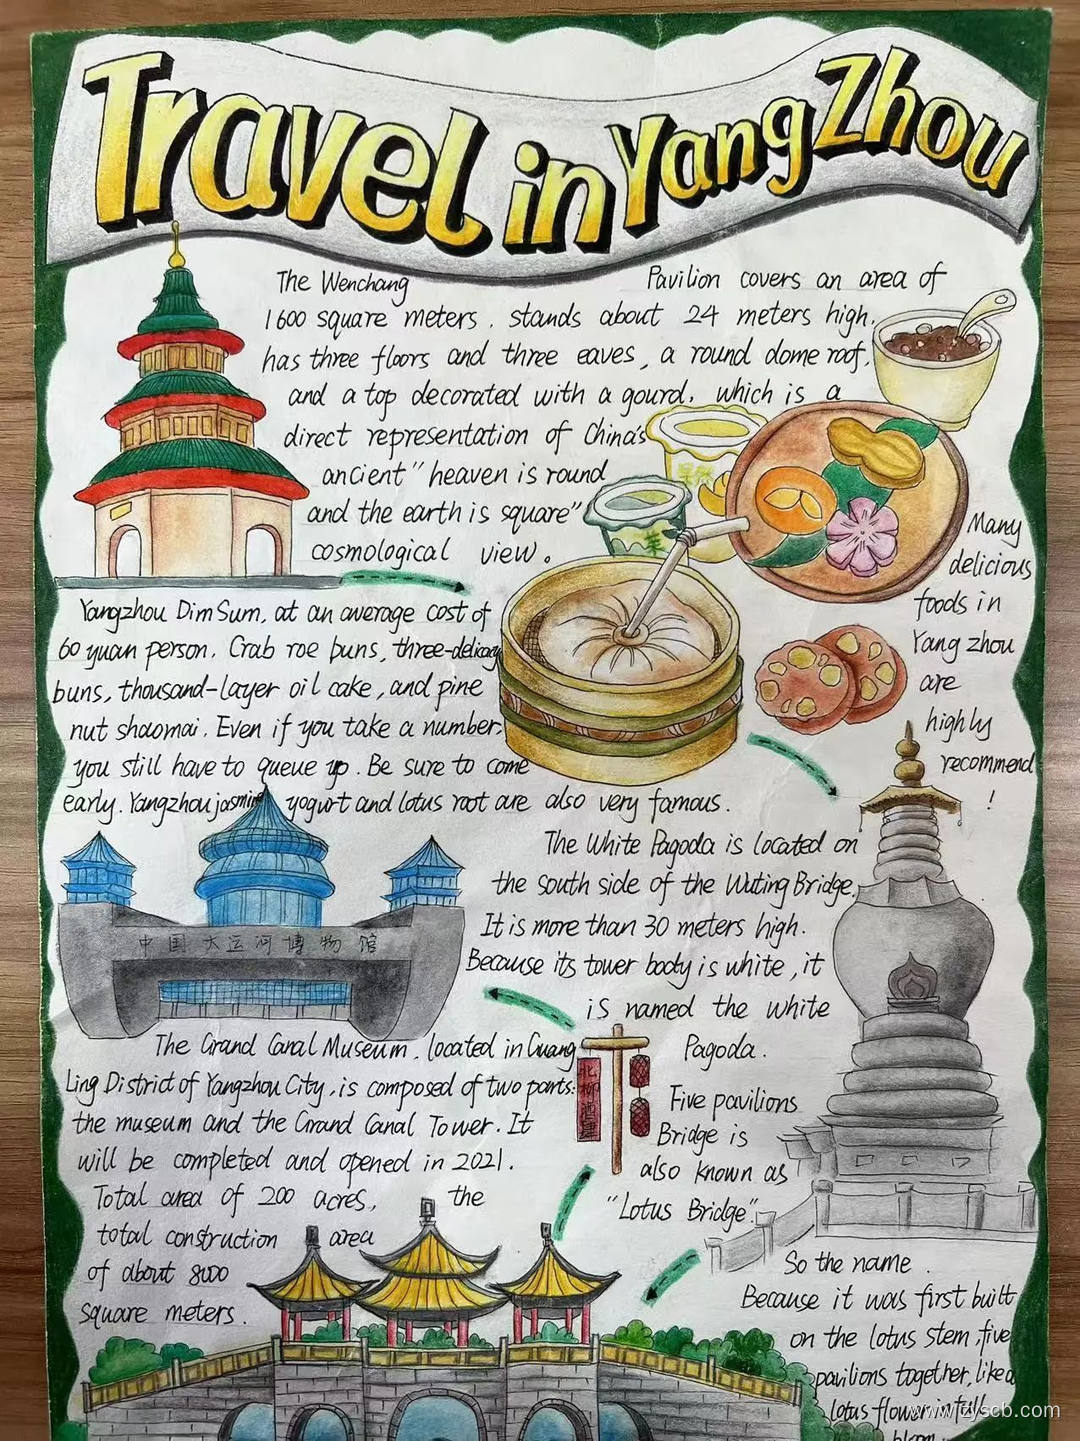 Travel in YangZhou
The Wenchang Pavilion covers an area of
1600 square meters. stands about 24 meters high.
has three floors and three eaves, a round dome roof,
and a top decorated with a gourd, which is a
direct representation of China's
ancient "heaven is round
and the earth is square"
cosmological view.
Many
delicious
foods in
Yang zhou
are
highly
recommend
!
Yangzhou Dim Sum, at an average cost of
60 yuan person. Crab roe buns, three-delicacy
buns, thousand-layer oil cake, and pine
nut shaomai. Even if you take a number,
you still have to queue up. Be sure to come
early. Yangzhou jasmine yogurt and lotus root are also very famous.
The White Pagoda is located on
the south side of the Wuting Bridge.
It is more than 30 meters high.
Because its tower body is white, it
is named the white
Pagoda.
中国大运河博物馆
The Grand Canal Museum, located in Guang
Ling District of Yangzhou City, is composed of two parts:
the museum and the Grand Canal Tower. It
will be completed and opened in 2021.
Total area of 200 acres, the
total construction area
of about 8000
square meters.
Five pavilions
Bridge is
also known as
"Lotus Bridge".
So the name.
Because it was first built
on the lotus stem, five
pavilions together, like a
lotus flower in full
bloom
www.jzyscb.com